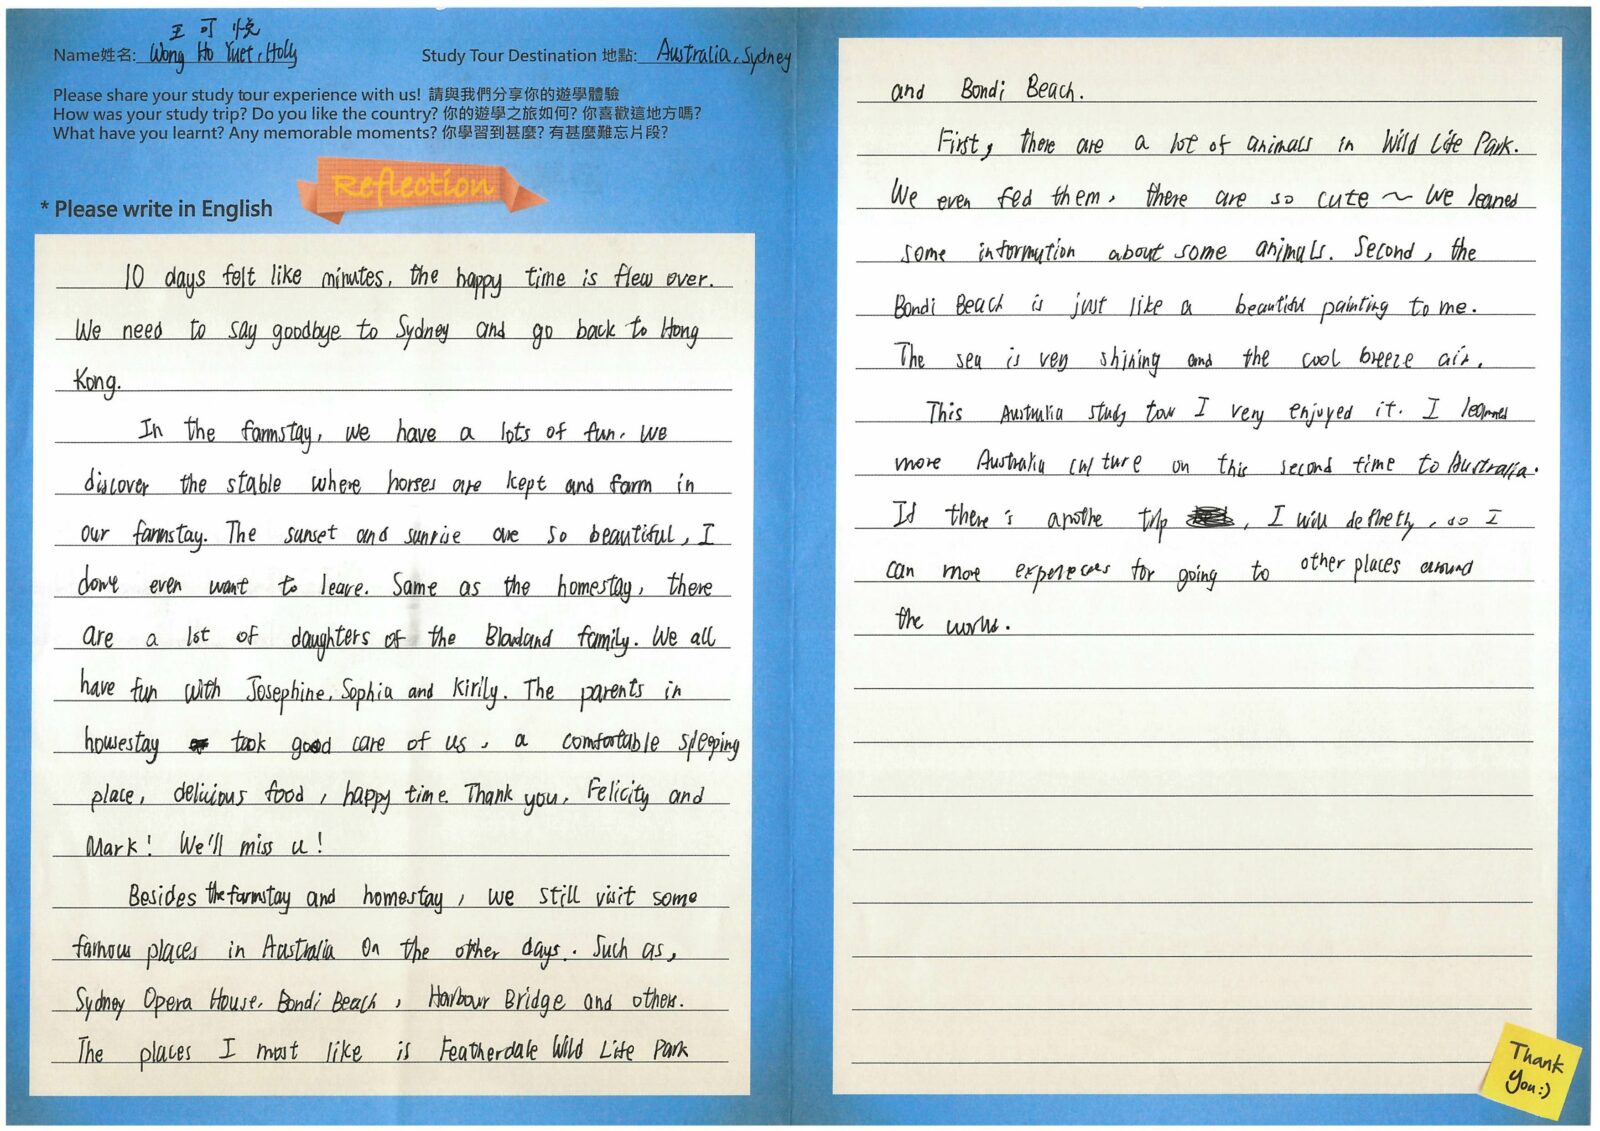 王可悅
Name姓名: Wong Ho Yuet, Holly
Study Tour Destination 地點: Australia, Sydney
Please share your study tour experience with us! 請與我們分享你的遊學體驗
How was your study trip? Do you like the country? 你的遊學之旅如何? 你喜歡這地方嗎?
What have you learnt? Any memorable moments? 你學習到甚麼? 有甚麼難忘片段?
Reflection
* Please write in English
10 days felt like minutes, the happy time is flew over.
We need to say goodbye to Sydney and go back to Hong
Kong.
In the farmstay, we have a lots of fun. We
discover the stable where horses are kept and farm in
our farmstay. The sunset and sunrise are so beautiful, I
don't even want to leave. Same as the homestay, there
are a lot of daughters of the family. We all
have fun with Josephine, Sophia and Kirily. The parents in
homestay took good care of us, a comfortable sleeping
place, delicious food, happy time. Thank you, Felicity and
Mark! We'll miss u!
Besides the farmstay and homestay, we still visit some
famous places in Australia on the other days. Such as,
Sydney Opera House, Bondi Beach, Harbour Bridge and others.
The places I most like is Featherdale Wild Life Park
and Bondi Beach.
First, there are a lot of animals in Wild Life Park.
We even fed them, there are so cute ~ We learned
some information about some animals. Second, the
Bondi Beach is just like a beautiful painting to me.
The sea is very shining and the cool breeze air.
This Australia study tour I very enjoyed it. I learned
more Australia culture on this second time to Australia.
If there is anothe trip, I will definetly, so I
can more for going to other places around
the world.
Thank
you:)